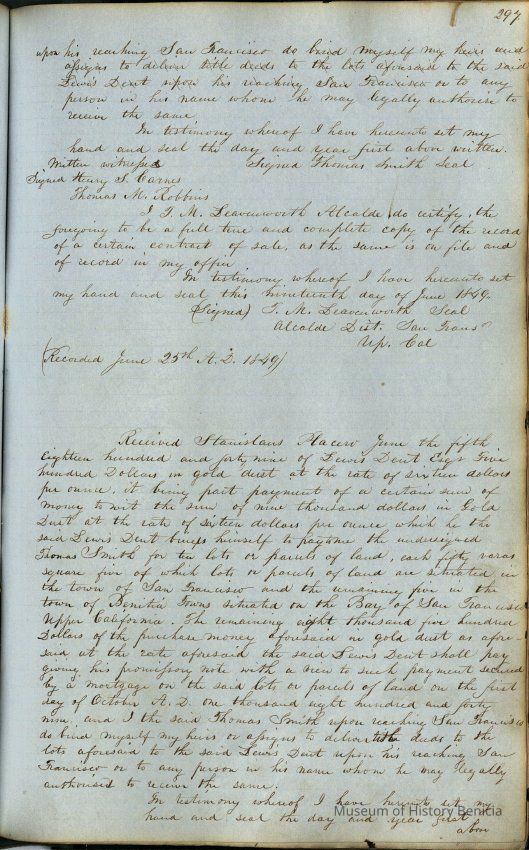 297
upon his reaching San Francisco do bind myself my heirs and
assigns to deliver title deeds to the lots aforesaid to the said
Lewis Dent upon his reaching San Francisco or to any
person in his name whom he may legally authorise to
receive the same.
In testimony whereof I have hereunto set my
hand and seal the day and year first abov written.
Written witnesses Signed Thomas Smith Seal
Signed Henry S. Carnes
Thomas M. Robbins
I T. M. Leavenworth Alcalde do certify, the
foregoing to be a full true and complete copy of the record
of a certain contract of sale, as the same is on file and
of record in my office
In testimony whereof I have hereunto set
my hand and seal this nineteenth day of June 1849.
(Signed) T. M. Leavenworth Seal
Alcalde Dist. San Fran
Up. Cal
(Recorded June 25th A.D. 1849)
Received Stanislaus Placero June the fifth
Eighteen hundred and forty nine of Lewis Dent Esqr Five
hundred Dollars in gold dust at the rate of sixteen dollars
per ounce, it being part payment of a certain sum of
money to wit the sum of nine thousand dollars in Gold
Dust at the rate of sixteen dollars per ounce which he the
said Lewis Dent binds himself to pay to me the undersigned
Thomas Smith for ten lots or parcels of land, each fifty varas
square five of which lots or parcels of land are situated in
the town of San Francisco and the remaining five in the
town of Benitia Towns situated on the Bay of San Francisco
Upper California. The remaining eight thousand five hundred
Dollars of the purchase money aforesaid in gold dust as afore-
said at the rate aforesaid the said Lewis Dent shall pay
giving his promissory note with a view to such payment secured
by a mortgage on the said lots or parcels of land on the first
day of October A.D. one thousand eight hundred and forty
nine and I the said Thomas Smith upon reaching San Francisco
do bind myself my heirs or assigns to deliver title deeds to the
lots aforesaid to the said Lewis Dent upon his reaching San
Francisco or to any person in his name whom he may legally
authorised to receive the same.
In testimony whereof I have hereunto set my
hand and seal the day and year first
above
Museum of History Benicia